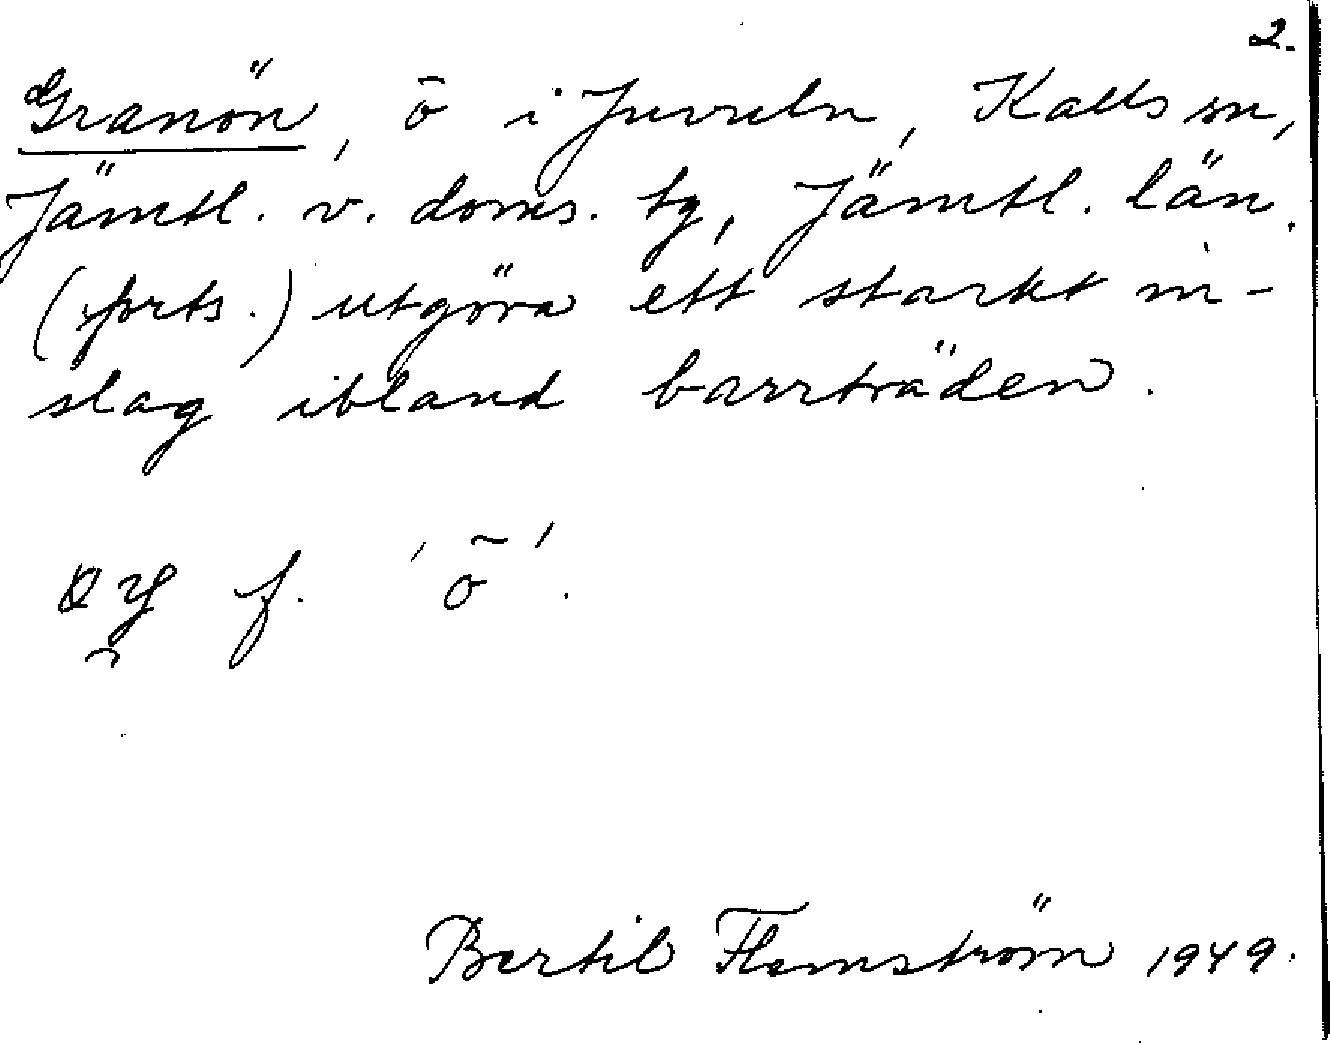 2.
Granön, ö i Juveln, Kalls sn,
Jämtl. v. doms. tg, Jämtl. län.
(forts.) utgöra ett starkt in-
slag ibland barrträden.
f. 'ö'.
Bertil Flemström 1949.